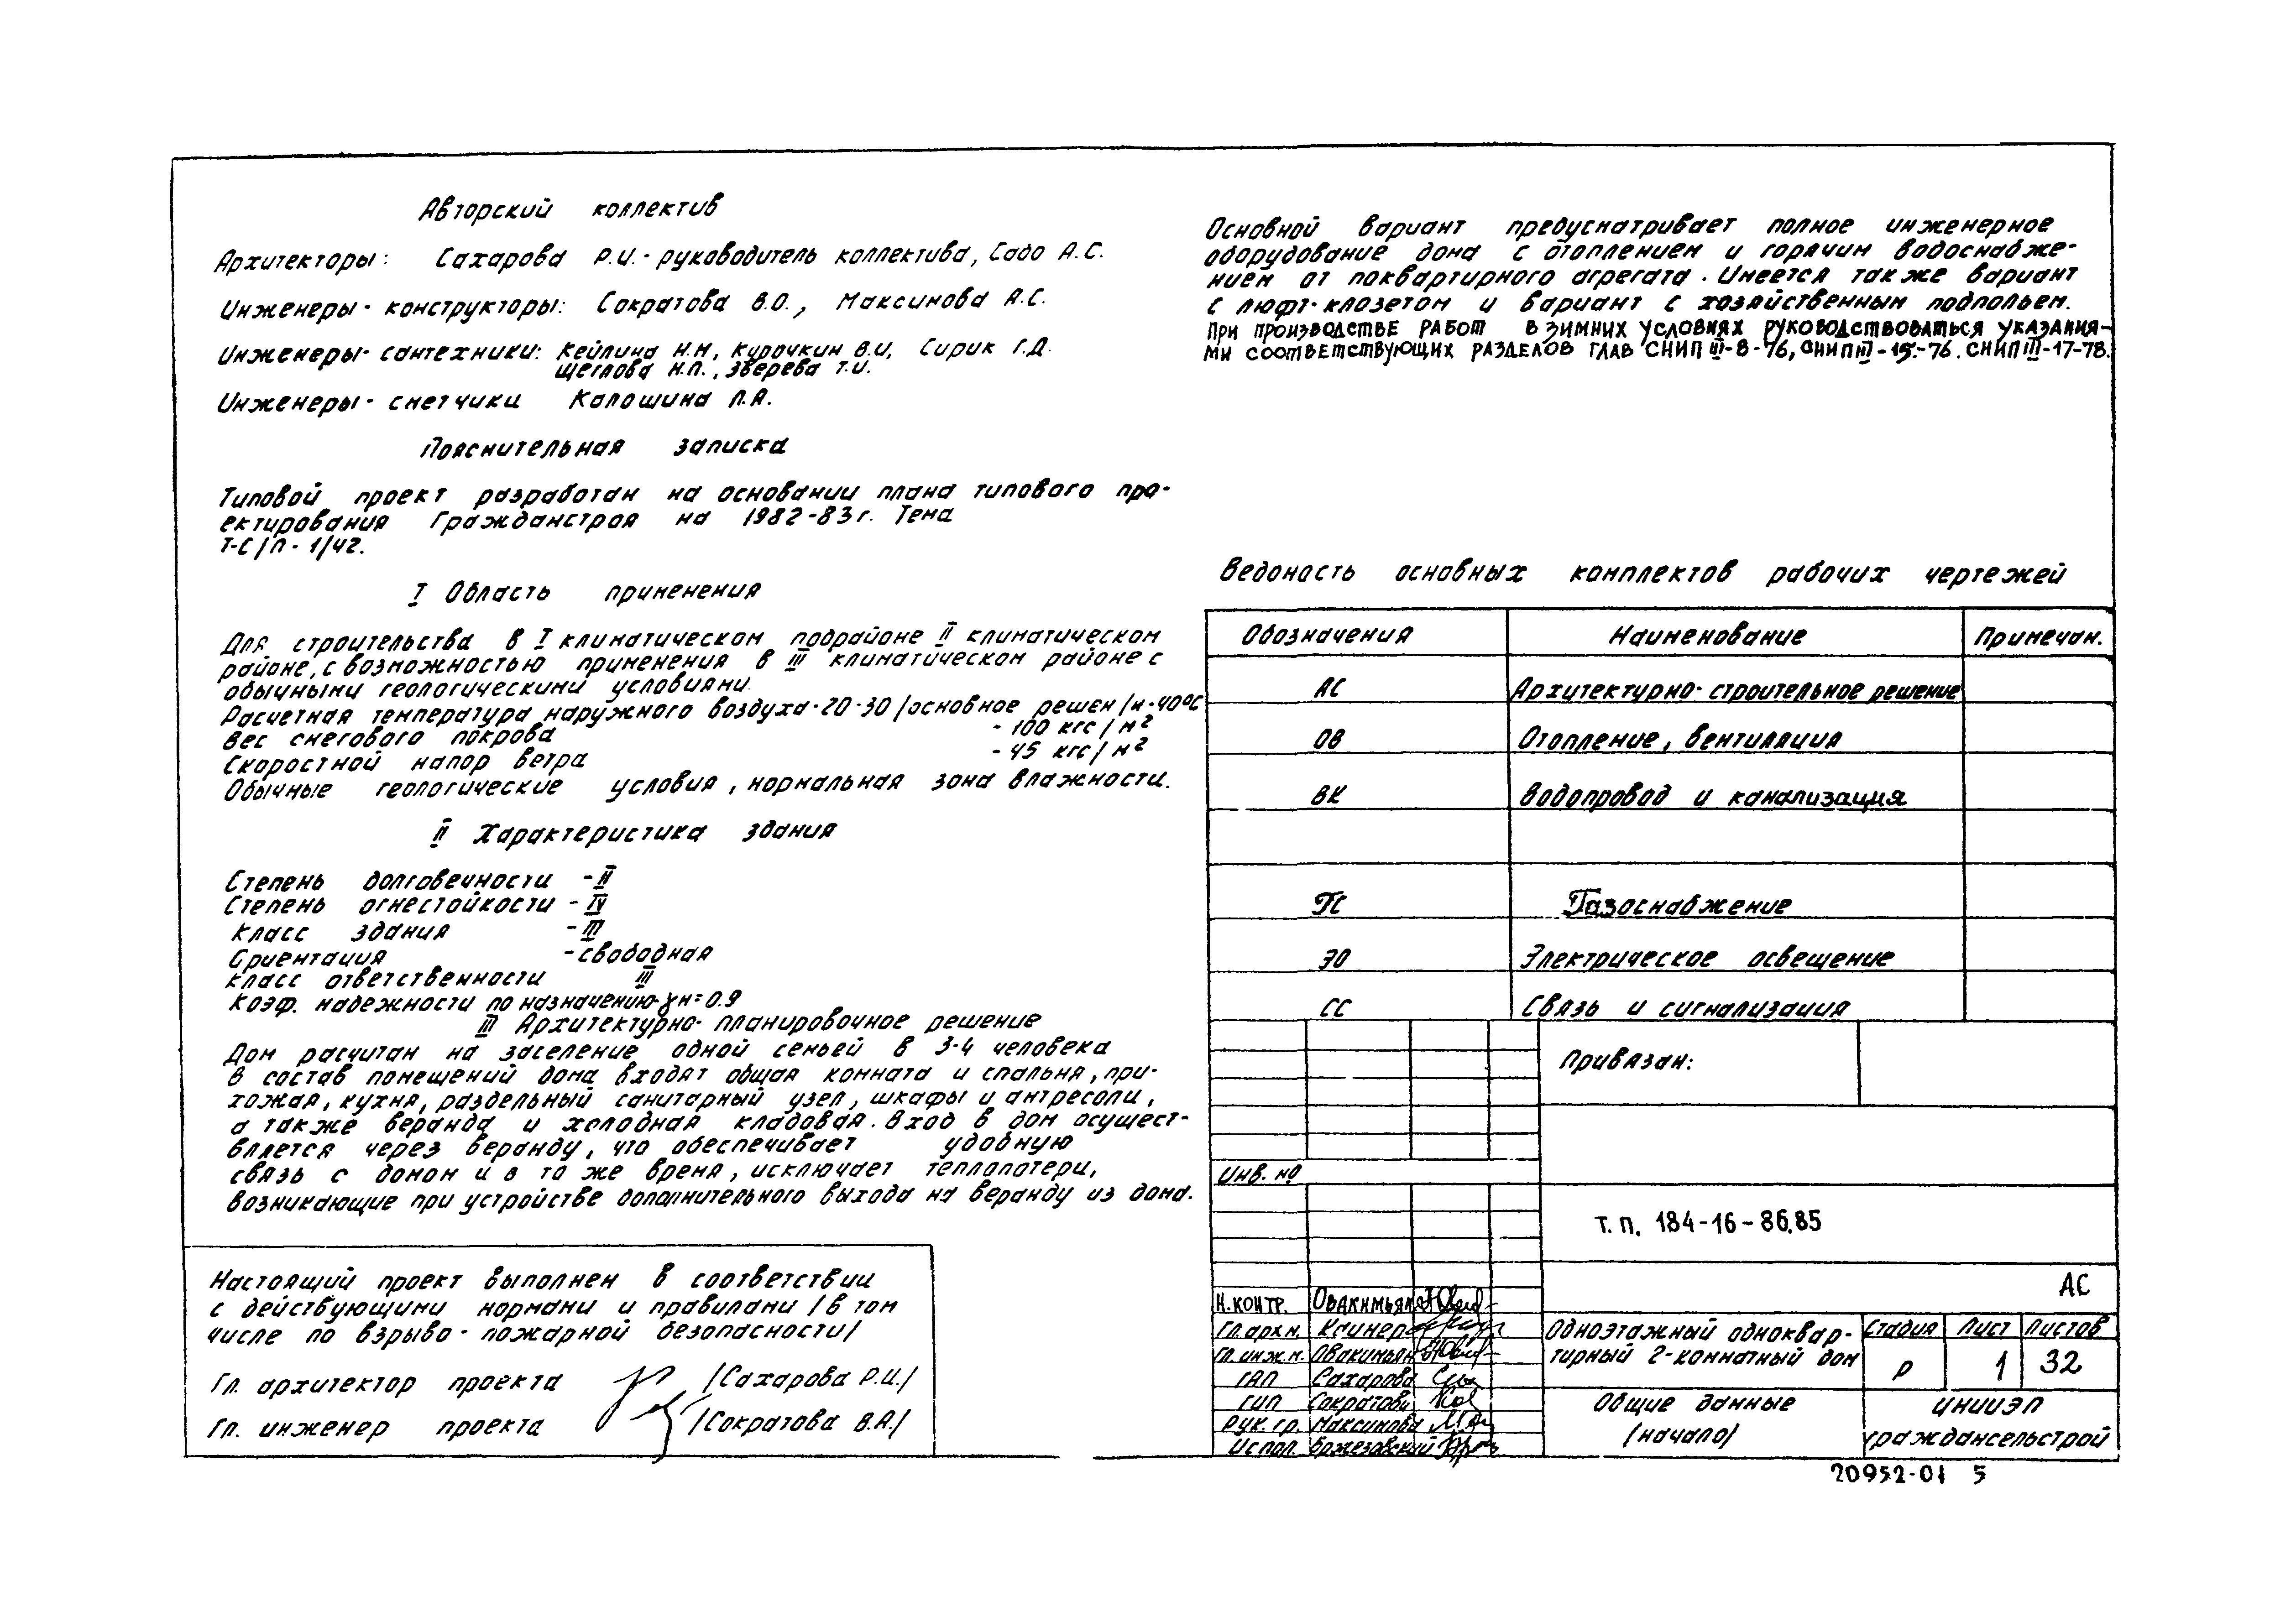 Авторский коллектив
Архитекторы: Сахарова Р.И.- руководитель коллектива, Садо А.С.
Инженеры- конструкторы: Сократова В.О., Максимова А.С.
Инженеры- сантехники: Кейлина Н.М, Курочкин В.И, Сирик Г.Д.
Щеглова Н.П., Зверева Т.И.
Инженеры- сметчики Калошина Л.А.
Пояснительная записка
Типовой проект разработан на основании плана типового про-
ектирования Гражданстроя на 1982-83г. Тема
Т-С/П- 1/42.
I Область применения
Для строительства в I климатическом подрайоне II климатическом
районе, с возможностью применения в III климатическом районе с
обычными геологическими условиями.
Расчетная температура наружного воздуха-20-30/основное решен/и-40°С
Вес снегового покрова - 100 кгс/м²
Скоростной напор ветра - 45 кгс/м²
Обычные геологические условия, нормальная зона влажности.
II Характеристика здания
Степень долговечности - II
Степень огнестойкости - IV
Класс здания - III
Ориентация - свободная
Класс ответственности III
Коэф. надежности по назначению-γн=0.9
III Архитектурно- планировочное решение
Дом расчитан на заселение одной семьей в 3-4 человека
В состав помещений дома входят общая комната и спальня, при-
хожая, кухня, раздельный санитарный узел, шкафы и антресоли,
а также веранда и холодная кладовая. Вход в дом осущест-
вляется через веранду, что обеспечивает удобную
связь с домом и в то же время, исключает теплопотери,
возникающие при устройстве дополнительного выхода на веранду из дома.
Настоящий проект выполнен в соответствии
с действующими нормами и правилами /в том
числе по взрыво- пожарной безопасности/
Гл. архитектор проекта /Сахарова Р.И./
Гл. инженер проекта /Сократова В.А./
Основной вариант предусматривает полное инженерное
оборудование дома с отоплением и горячим водоснабже-
нием от поквартирного агрегата. Имеется также вариант
с люфт-клозетом и вариант с хозяйственным подпольем.
При производстве работ в зимних условиях руководствоваться указания-
ми соответствующих разделов глав СНИП III-8-76, СНИП III-15-76. СНИП III-17-78.
Ведомость основных комплектов рабочих чертежей
Обозначения Наименование Примечан.
АС Архитектурно- строительное решение
ОВ Отопление, вентиляция
ВК Водопровод и канализация
ГС Газоснабжение
ЭО Электрическое освещение
СС Связь и сигнализация
Привязан:
Инв. но
Т.П. 184-16-86.85
АС
Н.контр. Овакимьян
Гл.арх.м. Каинер
Гл.инж.м. Овакимьян
ГАП Сахарова
ГИП Сократова
Рук. гр. Максимова
Испол. Бржезовский
Одноэтажный одноквар-
тирный 2-комнатный дом
Стадия Лист Листов
Р 1 32
Общие данные
/начало/
ЦНИИЭП
граждансельстрой
20952-01 5